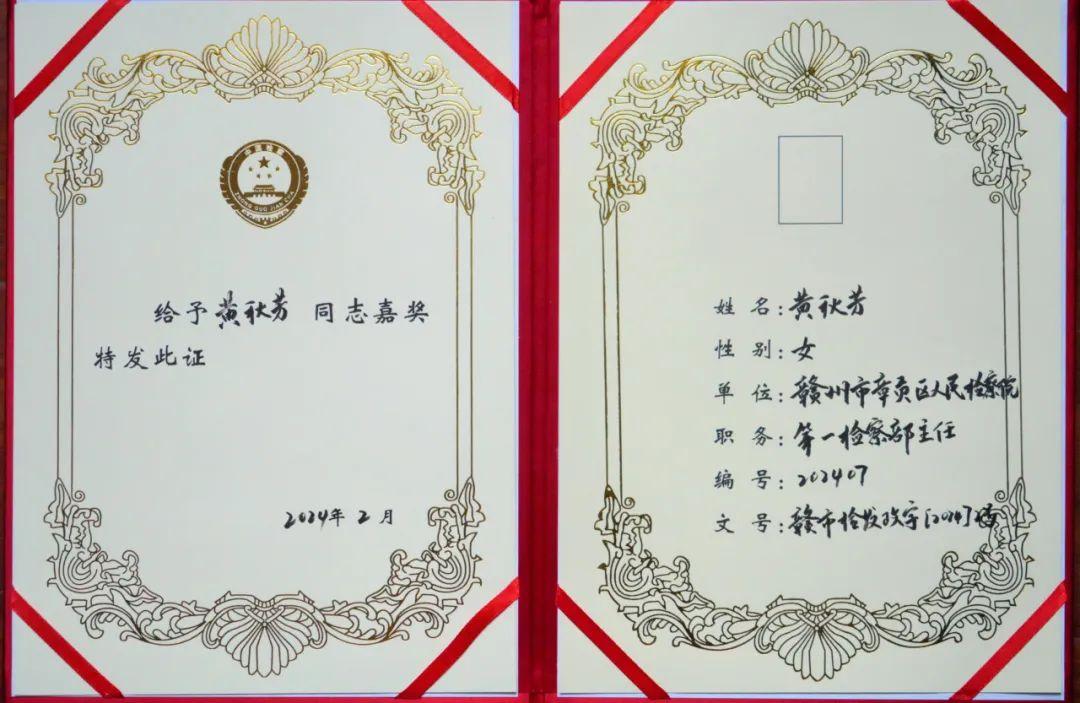 中国检察
ZHONG GUO JIAN CHA
给予黄秋芳 同志嘉奖
特发此证
2024年2月
姓名：黄秋芳
性别：女
单位：赣州市章贡区人民检察院
职务：第一检察部主任
编号：202407
文号：赣市检发政字〔2024〕